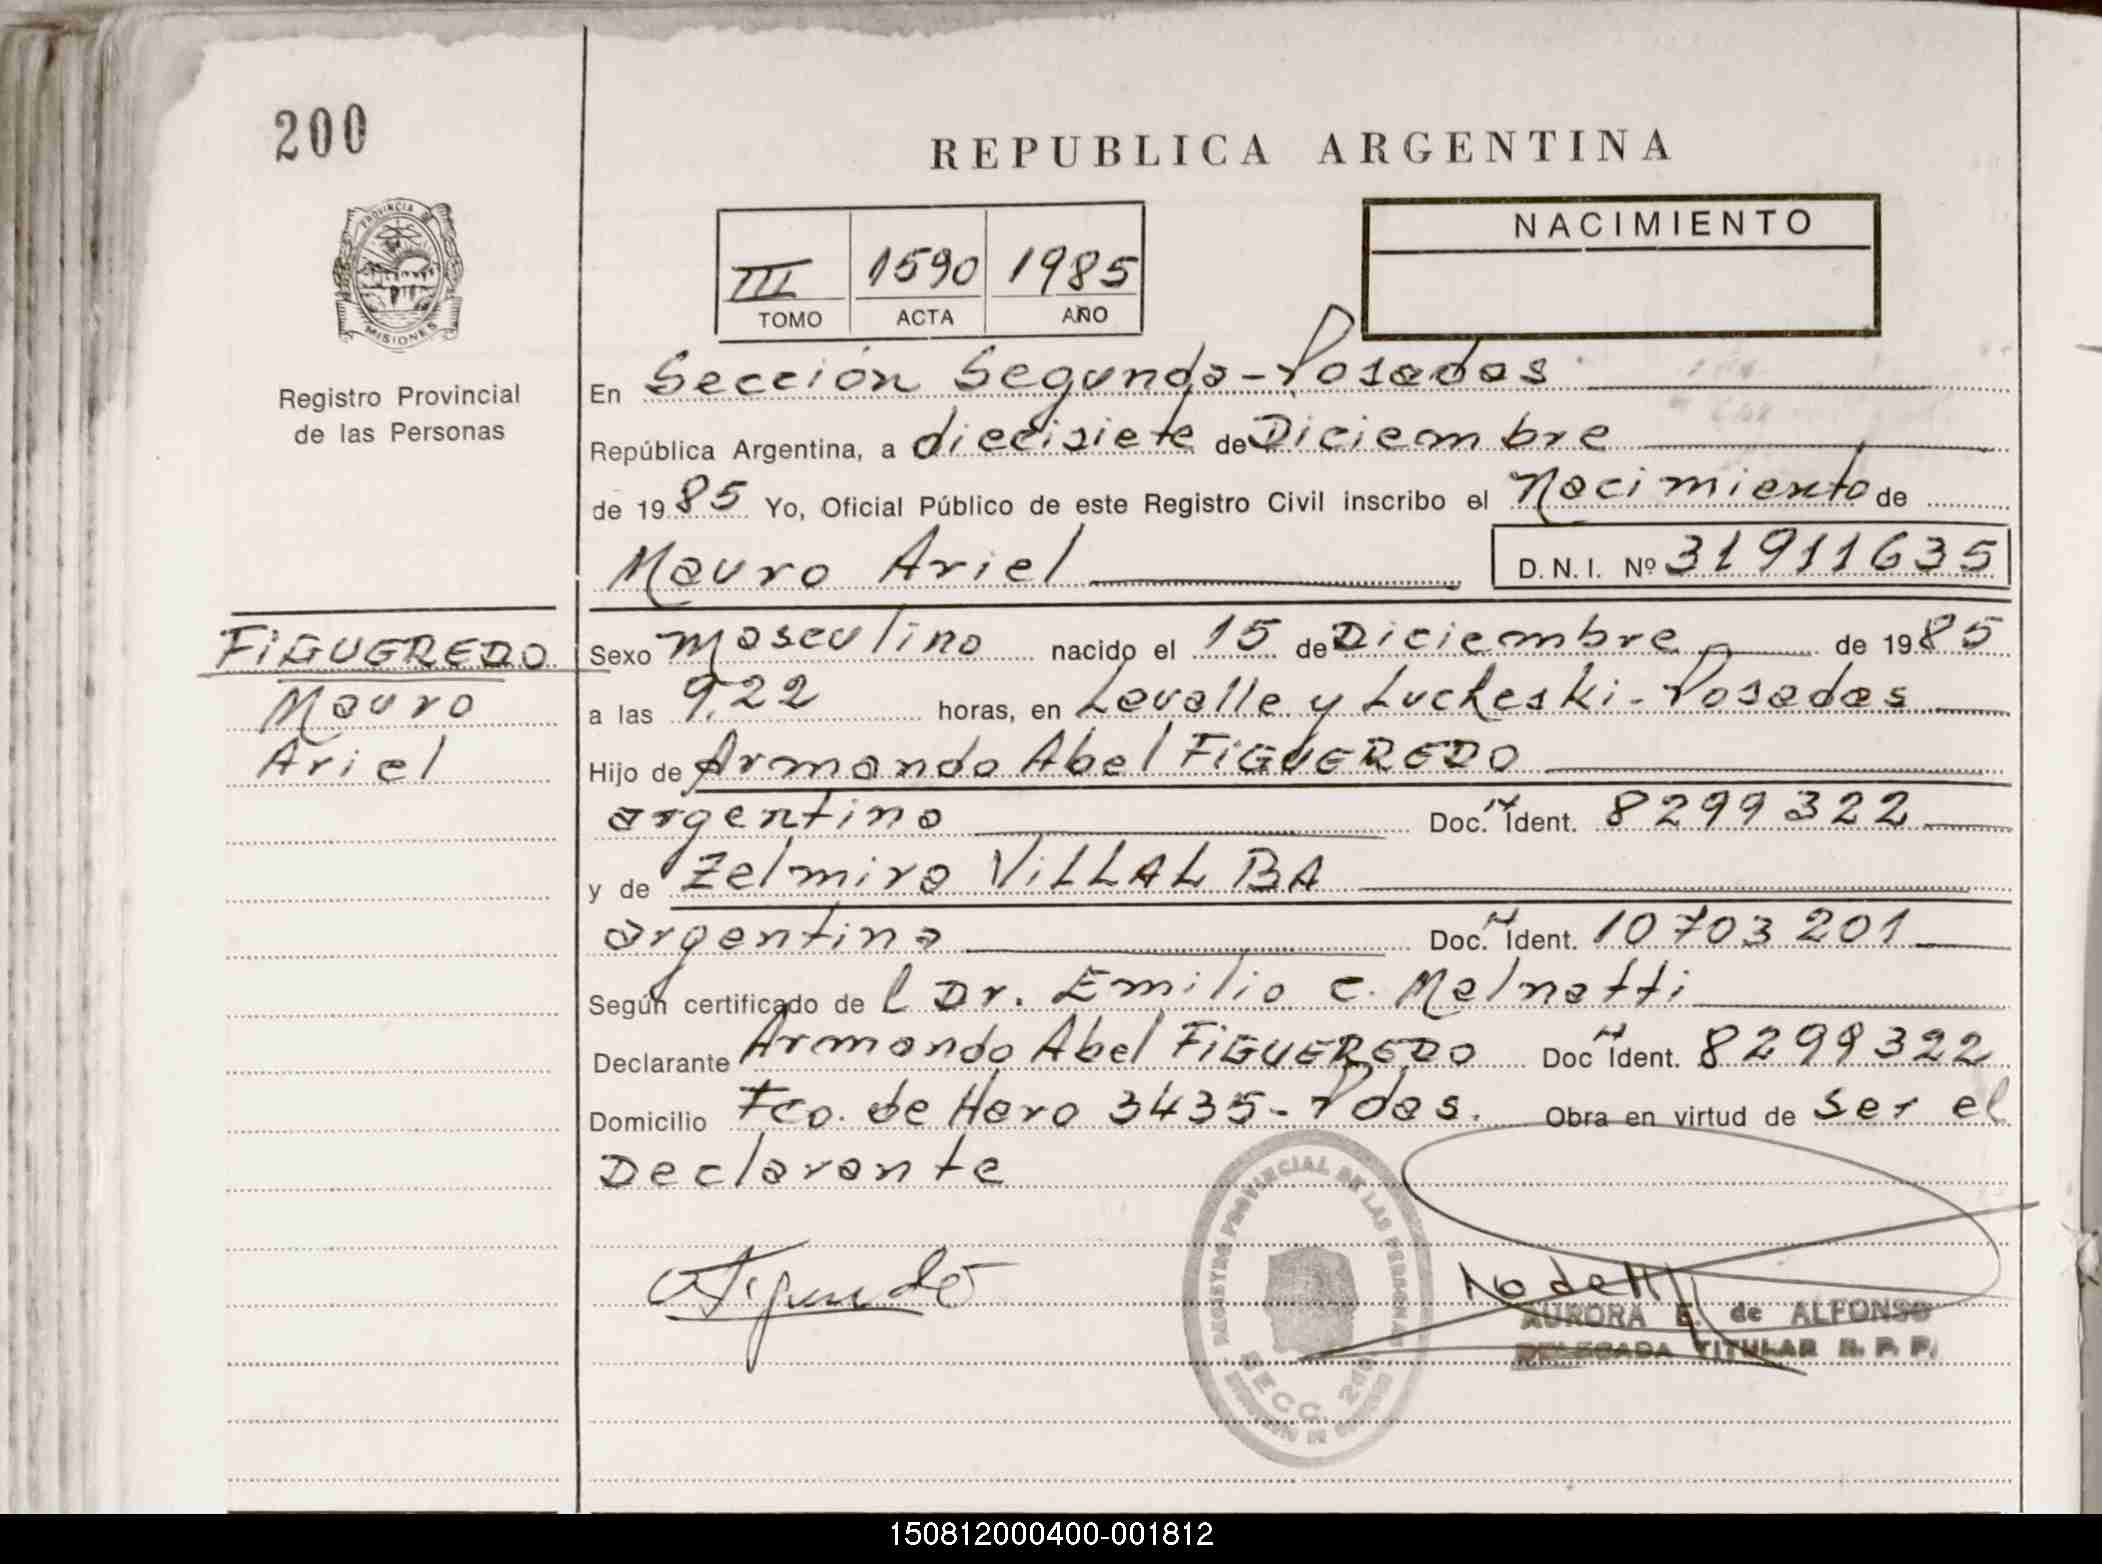 200
REPUBLICA ARGENTINA
PROVINCIA DE
MISIONES
Registro Provincial
de las Personas
NACIMIENTO
III 1590 1985
TOMO ACTA AÑO
En Sección Segunda-Posadas
República Argentina, a diecisiete de Diciembre
de 1985 Yo, Oficial Público de este Registro Civil inscribo el Nacimiento de
Mauro Ariel D.N.I. Nº 31911635
FiGUEREDO
Mauro
Ariel
Sexo Masculino nacido el 15 de Diciembre de 1985
a las 9,22 horas, en Lavalle y Lucheski-Posadas
Hijo de Armando Abel FiGUEREDO
argentino Doc. Ident. 8299322
y de Zelmira ViLLALBA
argentina Doc. Ident. 10703201
Según certificado de l Dr. Emilio C. Malnatti
Declarante Armando Abel FiGUEREDO Doc Ident. 8299322
Domicilio Fco. de Haro 3435-Pdas. Obra en virtud de ser el
Declarante
REGISTRO PROVINCIAL DE LAS PERSONAS
SECC. 2da
AURORA E. de ALFONSO
DELEGADA TITULAR R. P. P.
150812000400-001812